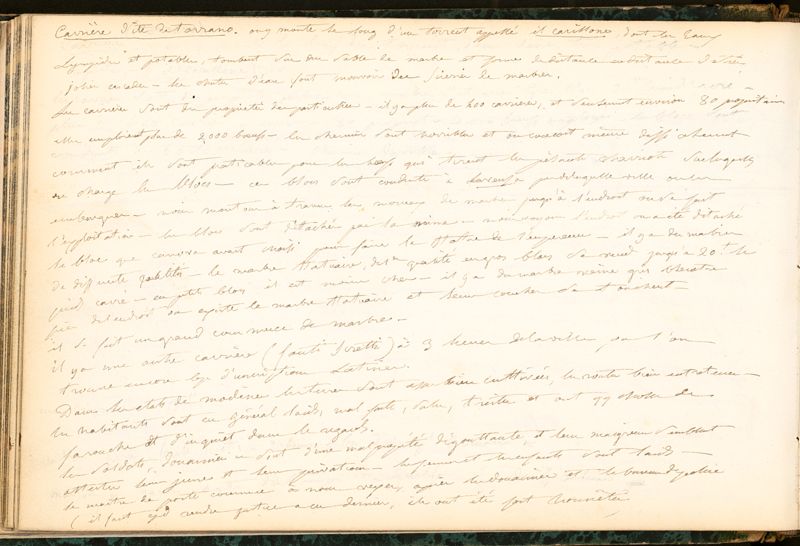 Carrière d'été de torrano. on y monte le long d'un torrent appellé il carillone, dont les Eaux
Lympides et potables, tombent sur du sable de marbre et forme de distance en distance de très
jolies cascades - les chutes d'eau font mouvoir des scieries de marbre.
Les carrières sont des propriétés des particuliers - il y a plus de 400 carrières, et seulement environ 80 propriétaires
elles employent plus de 2,000 bœufs - les chemins sont horribles et on conçoit même difficilement
comment ils sont praticables pour les bœufs qui tirent les pesants chariots sur lesquels
on charge les blocs - ces blocs sont conduits à près de laquelle ville on les
embarque - nous montons à travers les morceaux de marbre jusqu'à l'endroit où se fait
l'exploitation - les blocs sont détachés par la mine - nous voyons l'endroit où a été détaché
le bloc que canova avait choisi pour faire la statue de l'empereur - il y a du marbre
de différentes qualités - le marbre statuaire, de 1re qualité en gros blocs se vend jusqu'à 20 f. le
pied cube - en petits blocs il est moins cher - il y a du marbre veiné gris bleuâtre
près de l'endroit où on exploite le marbre statuaire et leurs couches se touchent -
il se fait un grand commerce de marbre -
il y a une autre carrière ( ) à 3 heures de la ville, où l'on
trouve encore des inscriptions Latines.
Dans les états de modène les terres sont assez bien cultivées, les routes bien entretenues -
les habitants sont en général laids, mal faits, sales, tristes et ont qq chose de
farouche et d'inquiet dans le regard.
les soldats, douaniers sont d'une malpropreté dégoutante, et leur maigreur semble
attester leurs jeunes et leurs privations - les femmes et les enfants sont laids -
le maître de poste commence à nous vexer, après les douaniers et le bureau de police
(il faut rendre justice a ces derniers, ils ont été fort honnêtes)